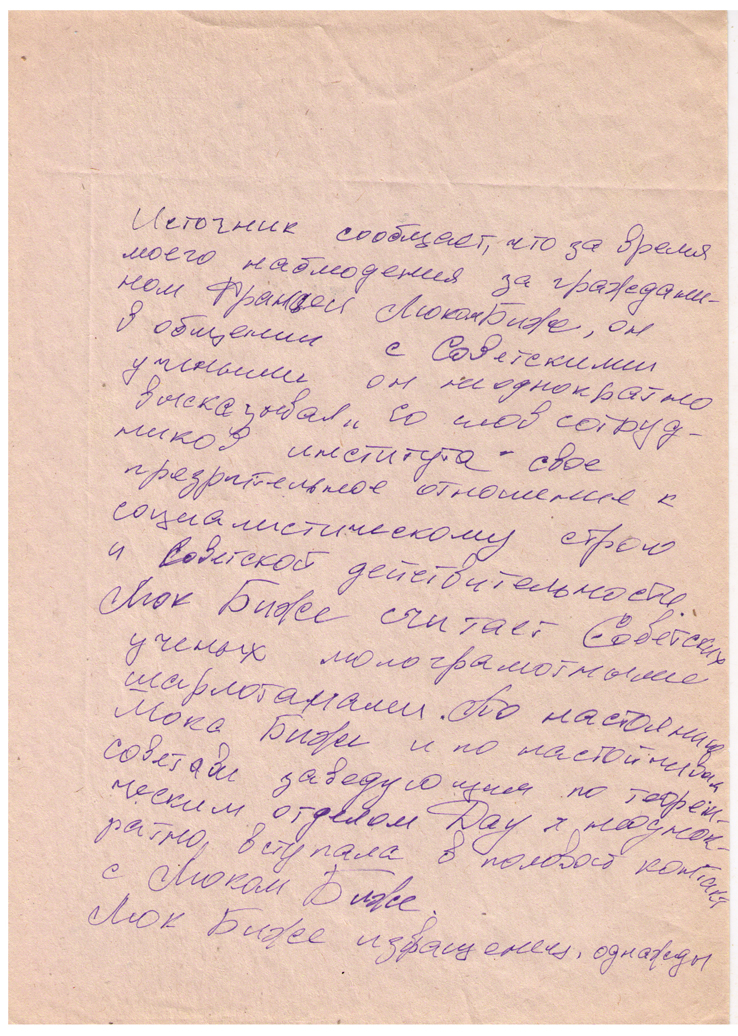 Источник сообщает, что за время
моего наблюдения за граждани-
ном Франции Люком Биже, он
в общении с Советскими
учеными он неоднократно
высказывал, со слов сотруд-
ников института - свое
презрительное отношение к
социалистическому строю
и Советской действительности.
Люк Биже считает Советских
ученых малограмотными
шарлотанами. По настоянию
Люка Биже и по настойчивым
советам заведующим по теорети-
ческим отделом Дау я неоднок-
ратно вступала в половой контакт
с Люком Биже.
Люк Биже извращенец, однажды